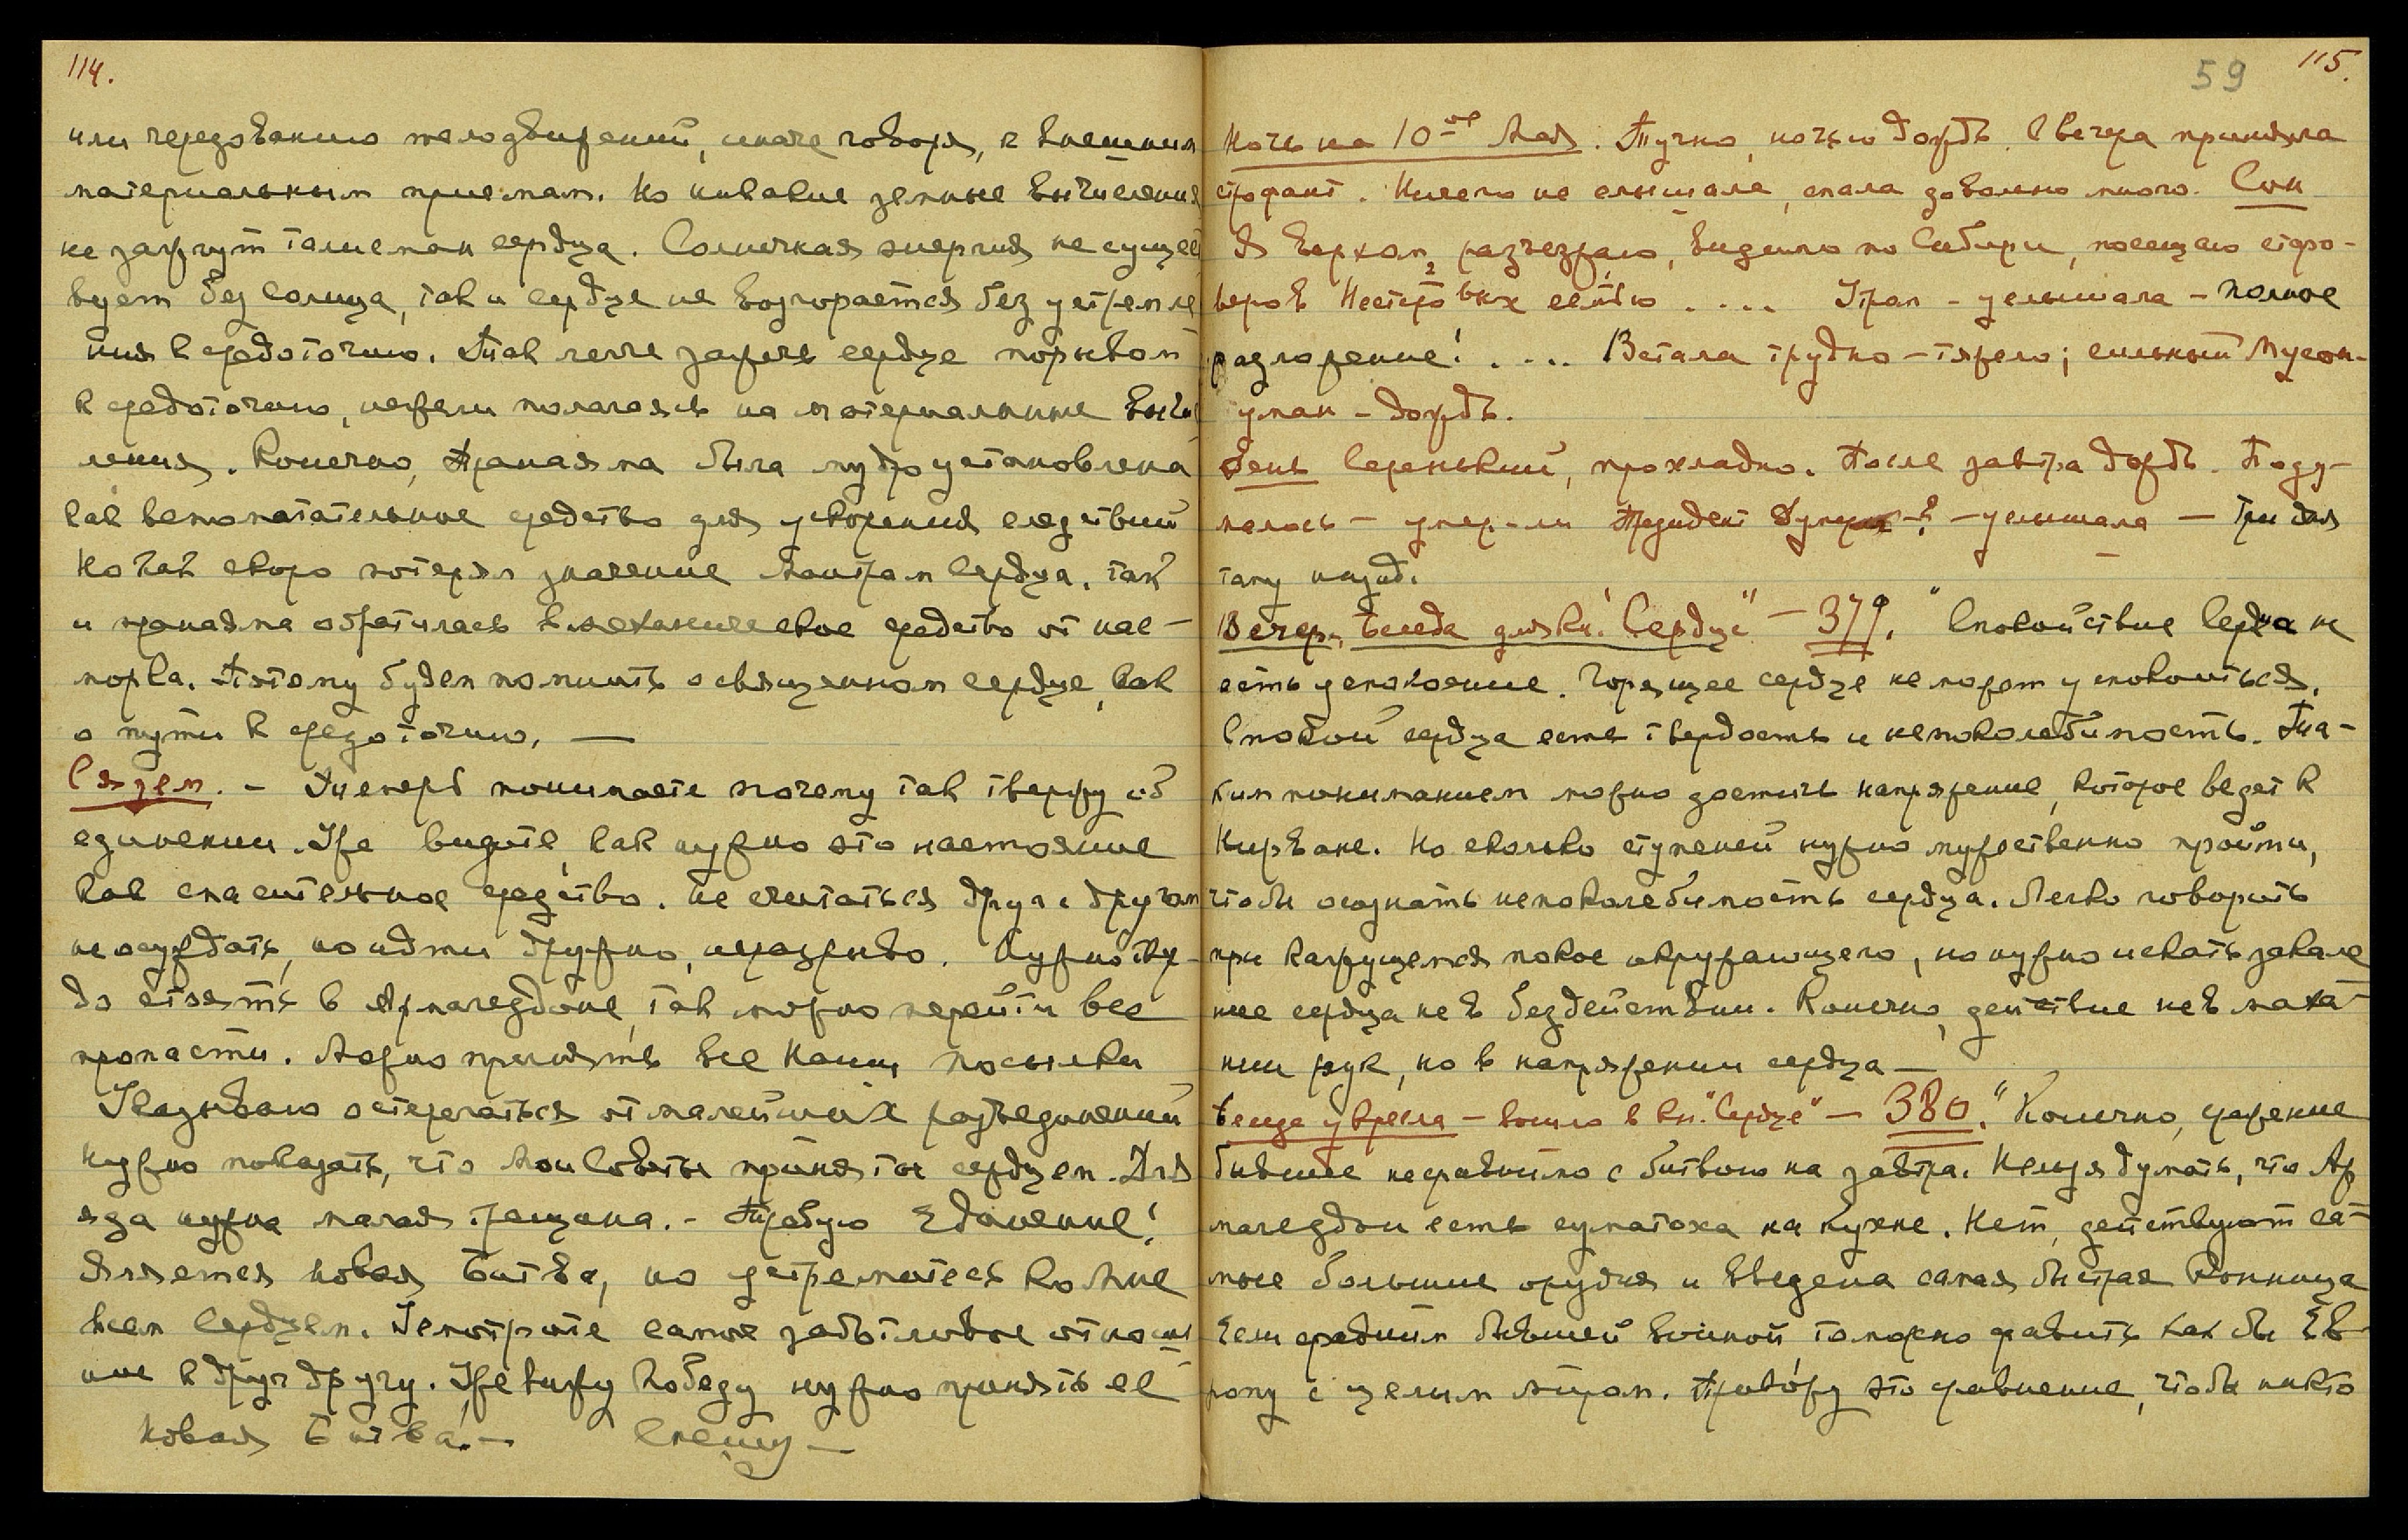 114.
или чередованию телодвижений, иначе говоря, к внешним
материальным приемам. Но никакие земные вычисления
не зажгут талисман сердца. Солнечная энергия не сущест
вует без Солнца, так и сердце не возгорается без устремле
ния к средоточию. Так легче зажечь сердце порывом
к средоточию, нежели полагаясь на материальные вычис
ления. Конечно, Пранаяма была мудро установлена
как вспомогательное средство для ускорения следствий
Но как скоро потерян значение Мантрам Сердца, так
и пранаяма обратилась в механическое средство от нас-
морка. Потому будем помнить о священном сердце, как
о пути к средоточию. —
Связем. – Теперь понимаете почему так твержу об
единении. Уже видите, как нужно это настояние
как спасительное средство. Не считаться друг с другом
не осуждать, но идти дружно, неразрывно. Нужно твер-
до стоять в Армагеддоне, так можно перейти все
пропасти. Можно принять все Наши посылки
Указываю остерегаться от малейших разъединений
Нужно показать, что Мои Советы приняты сердцем. Для
яда нужна малая трещина. – Требую Единение!
Является новая Битва, но устремитесь ко Мне
всем Сердцем. Усмотрите самое заботливое отноше
ние к друг другу. Уже вижу Победу нужно принять её
Новая Битва. — Спешу —
59
115.
Ночь на 10-ое Мая. Тучно, ночью дождь. С вечера приняла
строфант. Ничего не слышала, спала довольно много. Сон
Я верхом, разъезжаю, видимо по Сибири, посещаю старо-
веров Нестеровых семью .... Утром – услышала – Полное
разложение! .... Встала трудно – тяжело; сильный Мусон-
туман – дождь.
День Серенький, прохладно. После завтра дождь. Поду-
малось – умер-ли Президент Думер–? – услышала — Три дня
тому назад.
Вечер. Беседа для кн. "Сердце" — 379. "Спокойствие Сердца не
есть успокоение. Горящее сердце не может успокоиться.
Спокой сердца есть твердость и непоколебимость. Та-
ким пониманием можно достичь напряжение, которое ведет к
Нирване. Но сколько ступеней нужно мужественно пройти,
чтобы осознать непоколебимость сердца. Легко говорить
при кажущемся покое окружающего, но нужно искать закале
ние сердца не в бездействии. Конечно, действие не в маха-
нии рук, но в напряжении сердца —
Беседа у кресла – вошло в кн. "Сердце" — 380. "Конечно, сражение
бывшее несравнимо с битвою на завтра. Нельзя думать, что Ар
магеддон есть суматоха на кухне. Нет, действуют са-
мые большие орудия и введена самая быстрая Конница
Если средним бывшей войной, то можно сравнить как бы Ев-
ропу с целым миром. Привожу это сравнение, чтобы никто